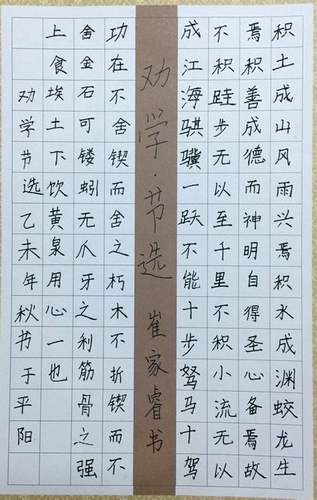 积土成山风雨兴焉积水成渊蛟龙生
焉积善成德而神明自得圣心备焉故
不积跬步无以至千里不积小流无以
成江海骐骥一跃不能十步驽马十驾
劝学·节选 崔家睿书
功在不舍锲而舍之朽木不折锲而不
舍金石可镂蚓无爪牙之利筋骨之强
上食埃土下饮黄泉用心一也
劝学节选乙未年秋节于平阳